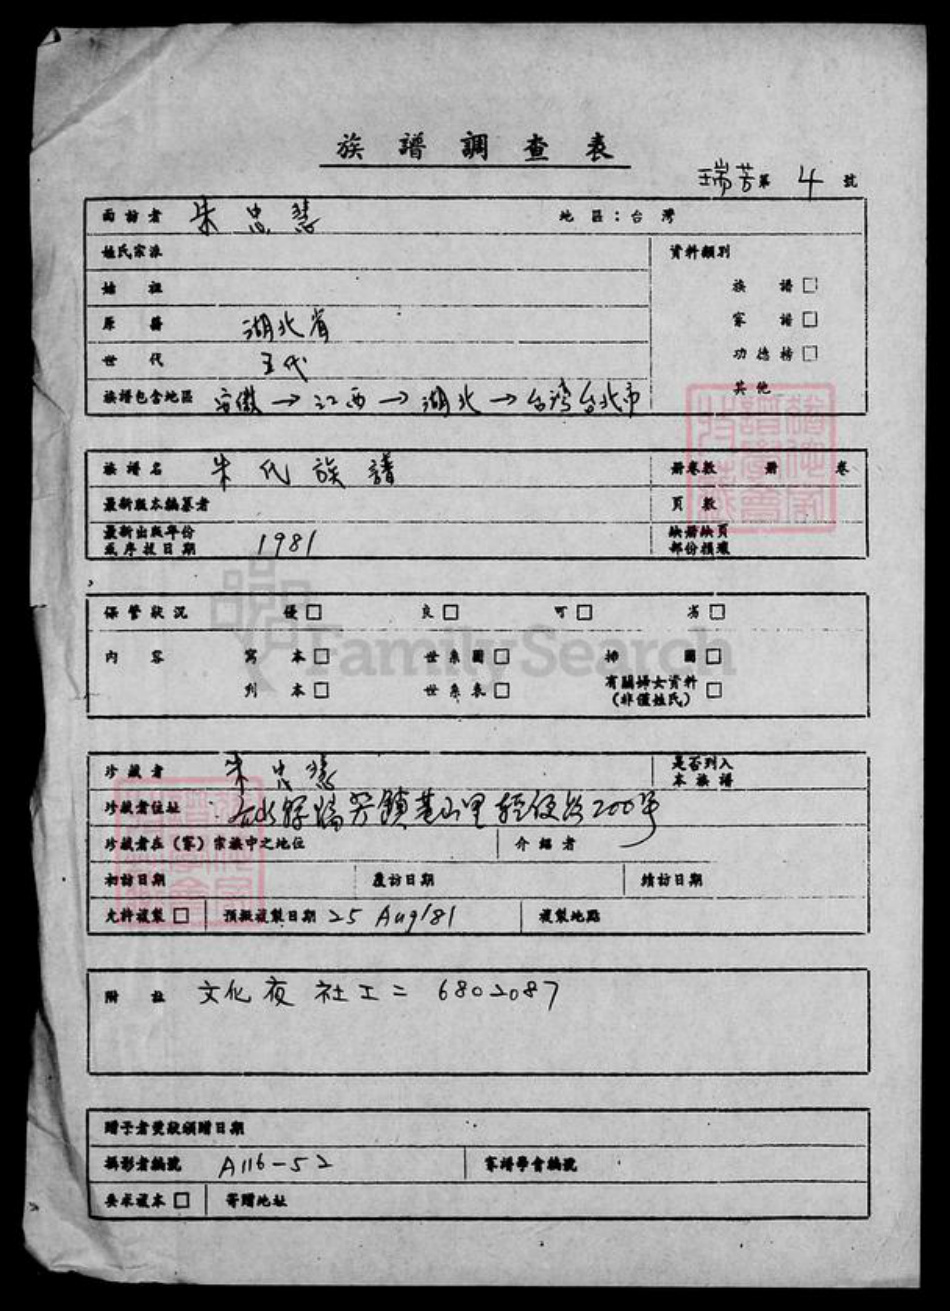 族譜調查表
瑞芳第 4 號
面訪者 朱忠慧 地區：台灣
姓氏宗派 資料類別
始祖 族譜□
原籍 湖北省 家譜□
世代 五代 功德榜□
族譜包含地區 安徽→江西→湖北→台灣台北市 其他
族譜名 朱氏族譜 冊卷數 冊 卷
最新版本編纂者 頁數
最新出版年份 缺冊缺頁
或序拔日期 1981 部份損壞
保管狀況 優□ 良□ 可□ 劣□
FamilySearch
內容 寫本□ 世系圖□ 掃圖□
刊本□ 世系表□ 有關婦女資料□
(非僅姓氏)
珍藏者 朱忠慧 是否列入
本族譜
珍藏者住址 瑞芳鎮 里 路200號
珍藏者在（家）宗族中之地位 介紹者
初訪日期 覆訪日期 續訪日期
允許複製□ 預擬複製日期 25 Aug/81 複製地點
附註 文化夜社工二 6802087
贈予者受獻頒贈日期
攝影者編號 A116-52 家譜學會編號
要求複本□ 寄贈地址